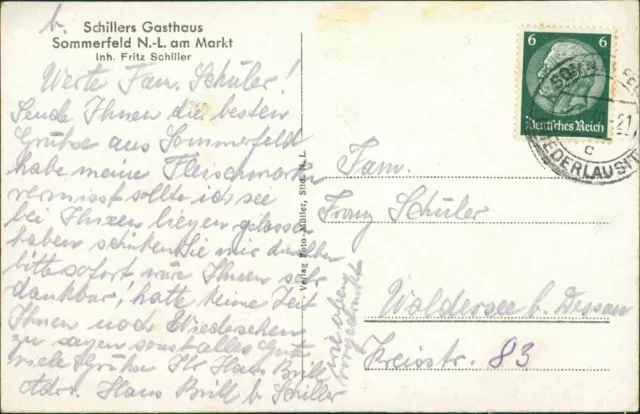 b.
Schillers Gasthaus
Sommerfeld N.-L. am Markt
Inh. Fritz Schiller
Werte Fam. Schüler!
Sende Ihnen die besten
Grüße aus Sommerfeld
habe meine Fleischmarken
vermisst sollte ich sie
bei Ihnen liegen gelassen
haben schicken Sie mir dieselben
bitte sofort wäre Ihnen sehr
dankbar, hatte keine Zeit
Ihnen noch Wiedersehen
zu sagen sonst alles Gut
viele Grüße Ihr Hans Brill
Adr. Hans Brill b. Schiller
Verlag Foto-Müller, Süd. N. L.
6 6
Deutsches Reich
SOM
21
c
NIEDERLAUSITZ
Fam.
Franz Schüler
Waldersee b. Dessau
Kreisstr. 83